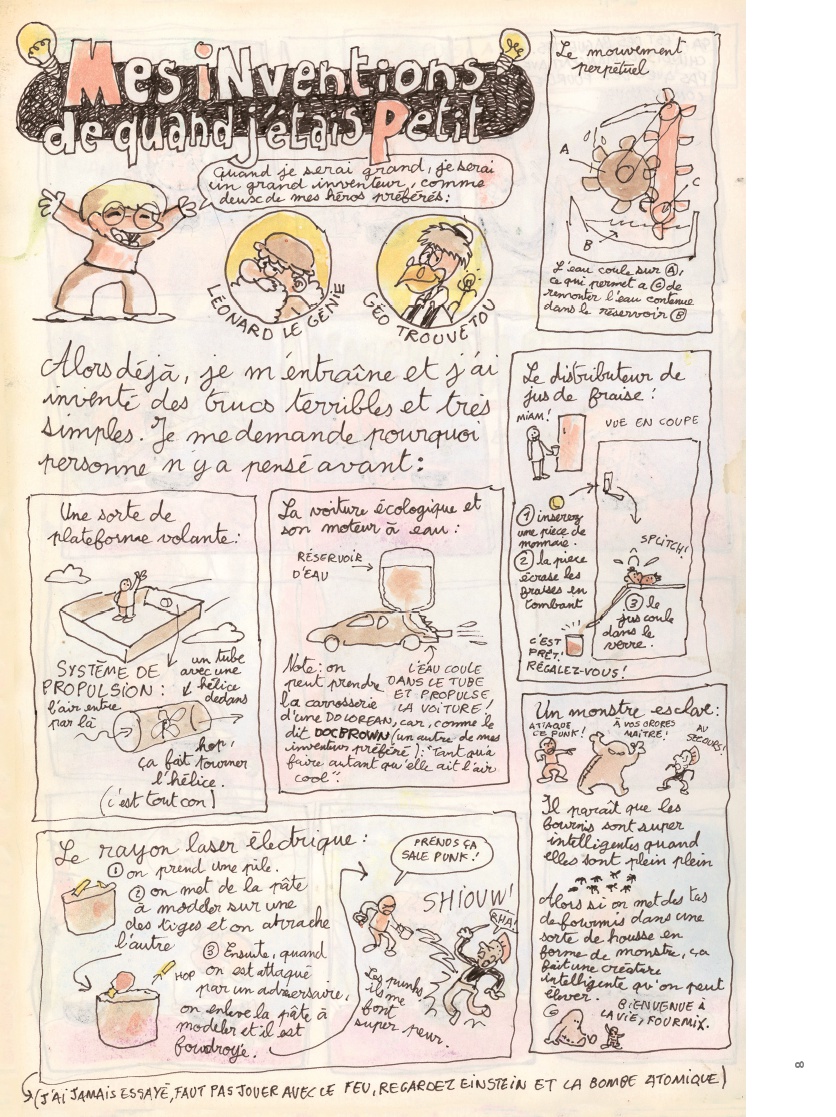 Mes iNventions
de quand j'étais Petit
Quand je serai grand, je serai
un grand inventeur, comme
deux de mes héros préférés :
LÉONARD LE GÉNIE
GÉO TROUVETOU
Alors déjà, je m'entraîne et j'ai
inventé des trucs terribles et très
simples. Je me demande pourquoi
personne n'y a pensé avant :
Le mouvement
perpétuel
A
C
B
L'eau coule sur A,
ce qui permet a C de
remonter l'eau contenue
dans le réservoir B
Le distributeur de
jus de fraise :
MIAM !
VUE EN COUPE
1 insérez
une pièce de
monnaie.
2 la pièce
écrase les
fraises en
tombant
SPLITCH !
3 le
jus coule
dans le
verre.
C'EST
PRÊT !
RÉGALEZ-VOUS !
Une sorte de
plateforme volante :
SYSTÈME DE
PROPULSION :
un tube
avec une
hélice
dedans
l'air entre
par là
hop !
ça fait tourner
l'hélice.
(c'est tout con)
La voiture écologique et
son moteur à eau :
RÉSERVOIR
D'EAU
L'EAU COULE
DANS LE TUBE
ET PROPULSE
LA VOITURE !
Note : on
peut prendre
la carrosserie
d'une DOLOREAN, car, comme le
dit DOCBROWN (un autre de mes
inventeurs préféré) : "Tant qu'à
faire autant qu'elle ait l'air
cool".
Un monstre esclave :
ATTAQUE
CE PUNK !
À VOS ORDRES
MAÎTRE !
AU
SECOURS !
Il paraît que les
fourmis sont super
intelligentes quand
elles sont plein plein
Alors si on met des tas
de fourmis dans une
sorte de housse en
forme de monstre, ça
fait une créature
intelligente qu'on peut
élever.
BIENVENUE À
LA VIE, FOURMIX.
Le rayon laser électrique :
1 on prend une pile.
2 on met de la pâte
à modeler sur une
des tiges et on arrache
l'autre
HOP
3 Ensuite, quand
on est attaqué
par un adversaire,
on enlève la pâte à
modeler et il est
foudroyé.
PRENDS ÇA
SALE PUNK !
SHIOUW !
RHA !
Les punks,
ils me
font
super peur.
(J'AI JAMAIS ESSAYÉ, FAUT PAS JOUER AVEC LE FEU, REGARDEZ EINSTEIN ET LA BOMBE ATOMIQUE)
8